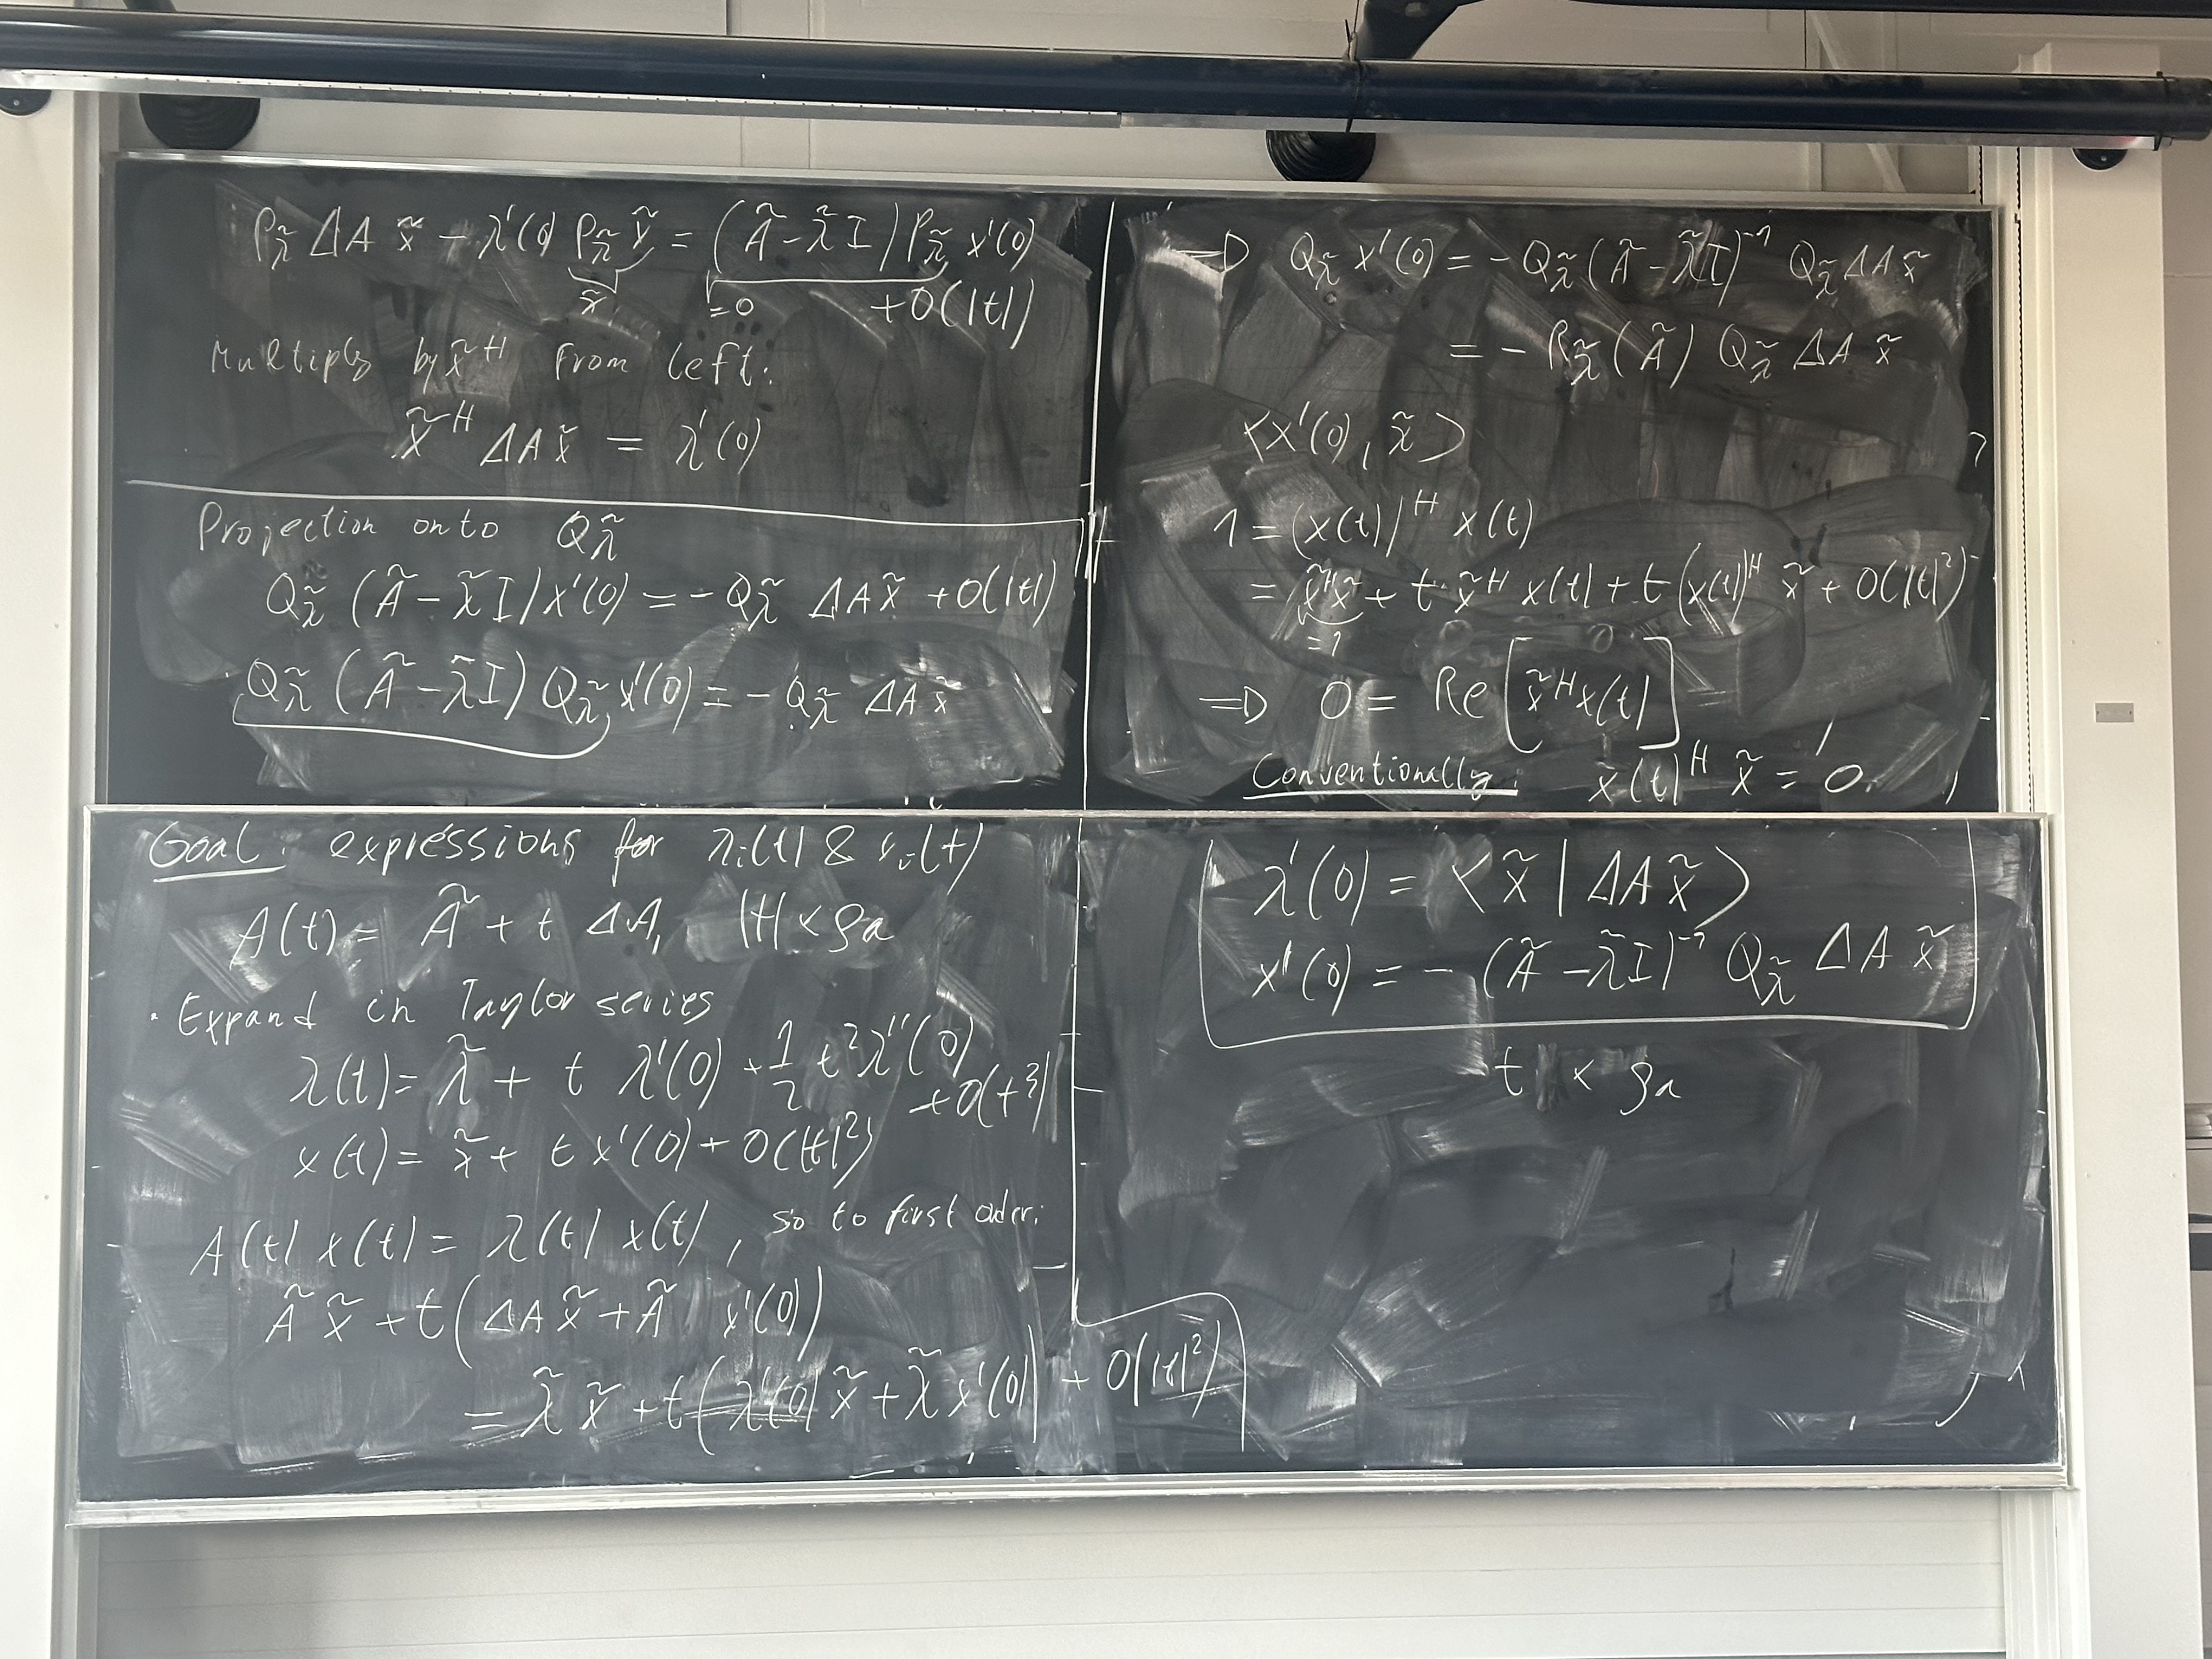 P_λ̃ ΔA x̃ − λ'(0) P_λ̃ x̃ = (Ã − λ̃ I) P_λ̃ x'(0)
x̃ =0 +O(|t|)
Multiply by x̃^H from left:
x̃^H ΔA x̃ = λ'(0)
Projection onto Q_λ̃
Q_λ̃ (Ã − λ̃ I) x'(0) = − Q_λ̃ ΔA x̃ + O(|t|)
Q_λ̃ (Ã − λ̃ I) Q_λ̃ x'(0) = − Q_λ̃ ΔA x̃
⇒ Q_λ̃ x'(0) = − Q_λ̃ (Ã − λ̃ I)^-1 Q_λ̃ ΔA x̃
= − R_λ̃ (Ã) Q_λ̃ ΔA x̃
<x'(0), x̃>
1 = (x(t))^H x(t)
= x̃^H x̃ + t x̃^H x(t) + t (x(t))^H x̃ + O(|t|^2)
=1
⇒ 0 = Re [x̃^H x(t)]
Conventionally: x(t)^H x̃ = 0.
Goal: expressions for λ_i(t) & x_i(t)
A(t) = Ã + t ΔA, |t| < ρa
· Expand in Taylor series
λ(t) = λ̃ + t λ'(0) + 1/2 t^2 λ''(0)
+ O(t^3)
x(t) = x̃ + t x'(0) + O(|t|^2)
A(t) x(t) = λ(t) x(t), so to first order:
Ã x̃ + t (ΔA x̃ + Ã x'(0))
= λ̃ x̃ + t (λ'(0) x̃ + λ̃ x'(0)) + O(|t|^2)
λ'(0) = <x̃ | ΔA x̃>
x'(0) = − (Ã − λ̃ I)^-1 Q_λ̃ ΔA x̃
t < ρa